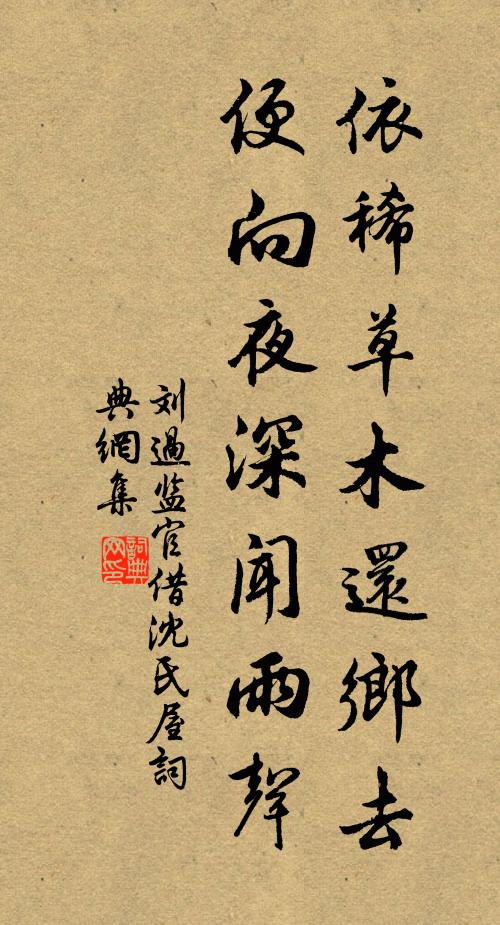 依稀草木還鄉去
便向夜深聞雨聲
刘過监官借沈氏屋詞
典網集
詞典网印